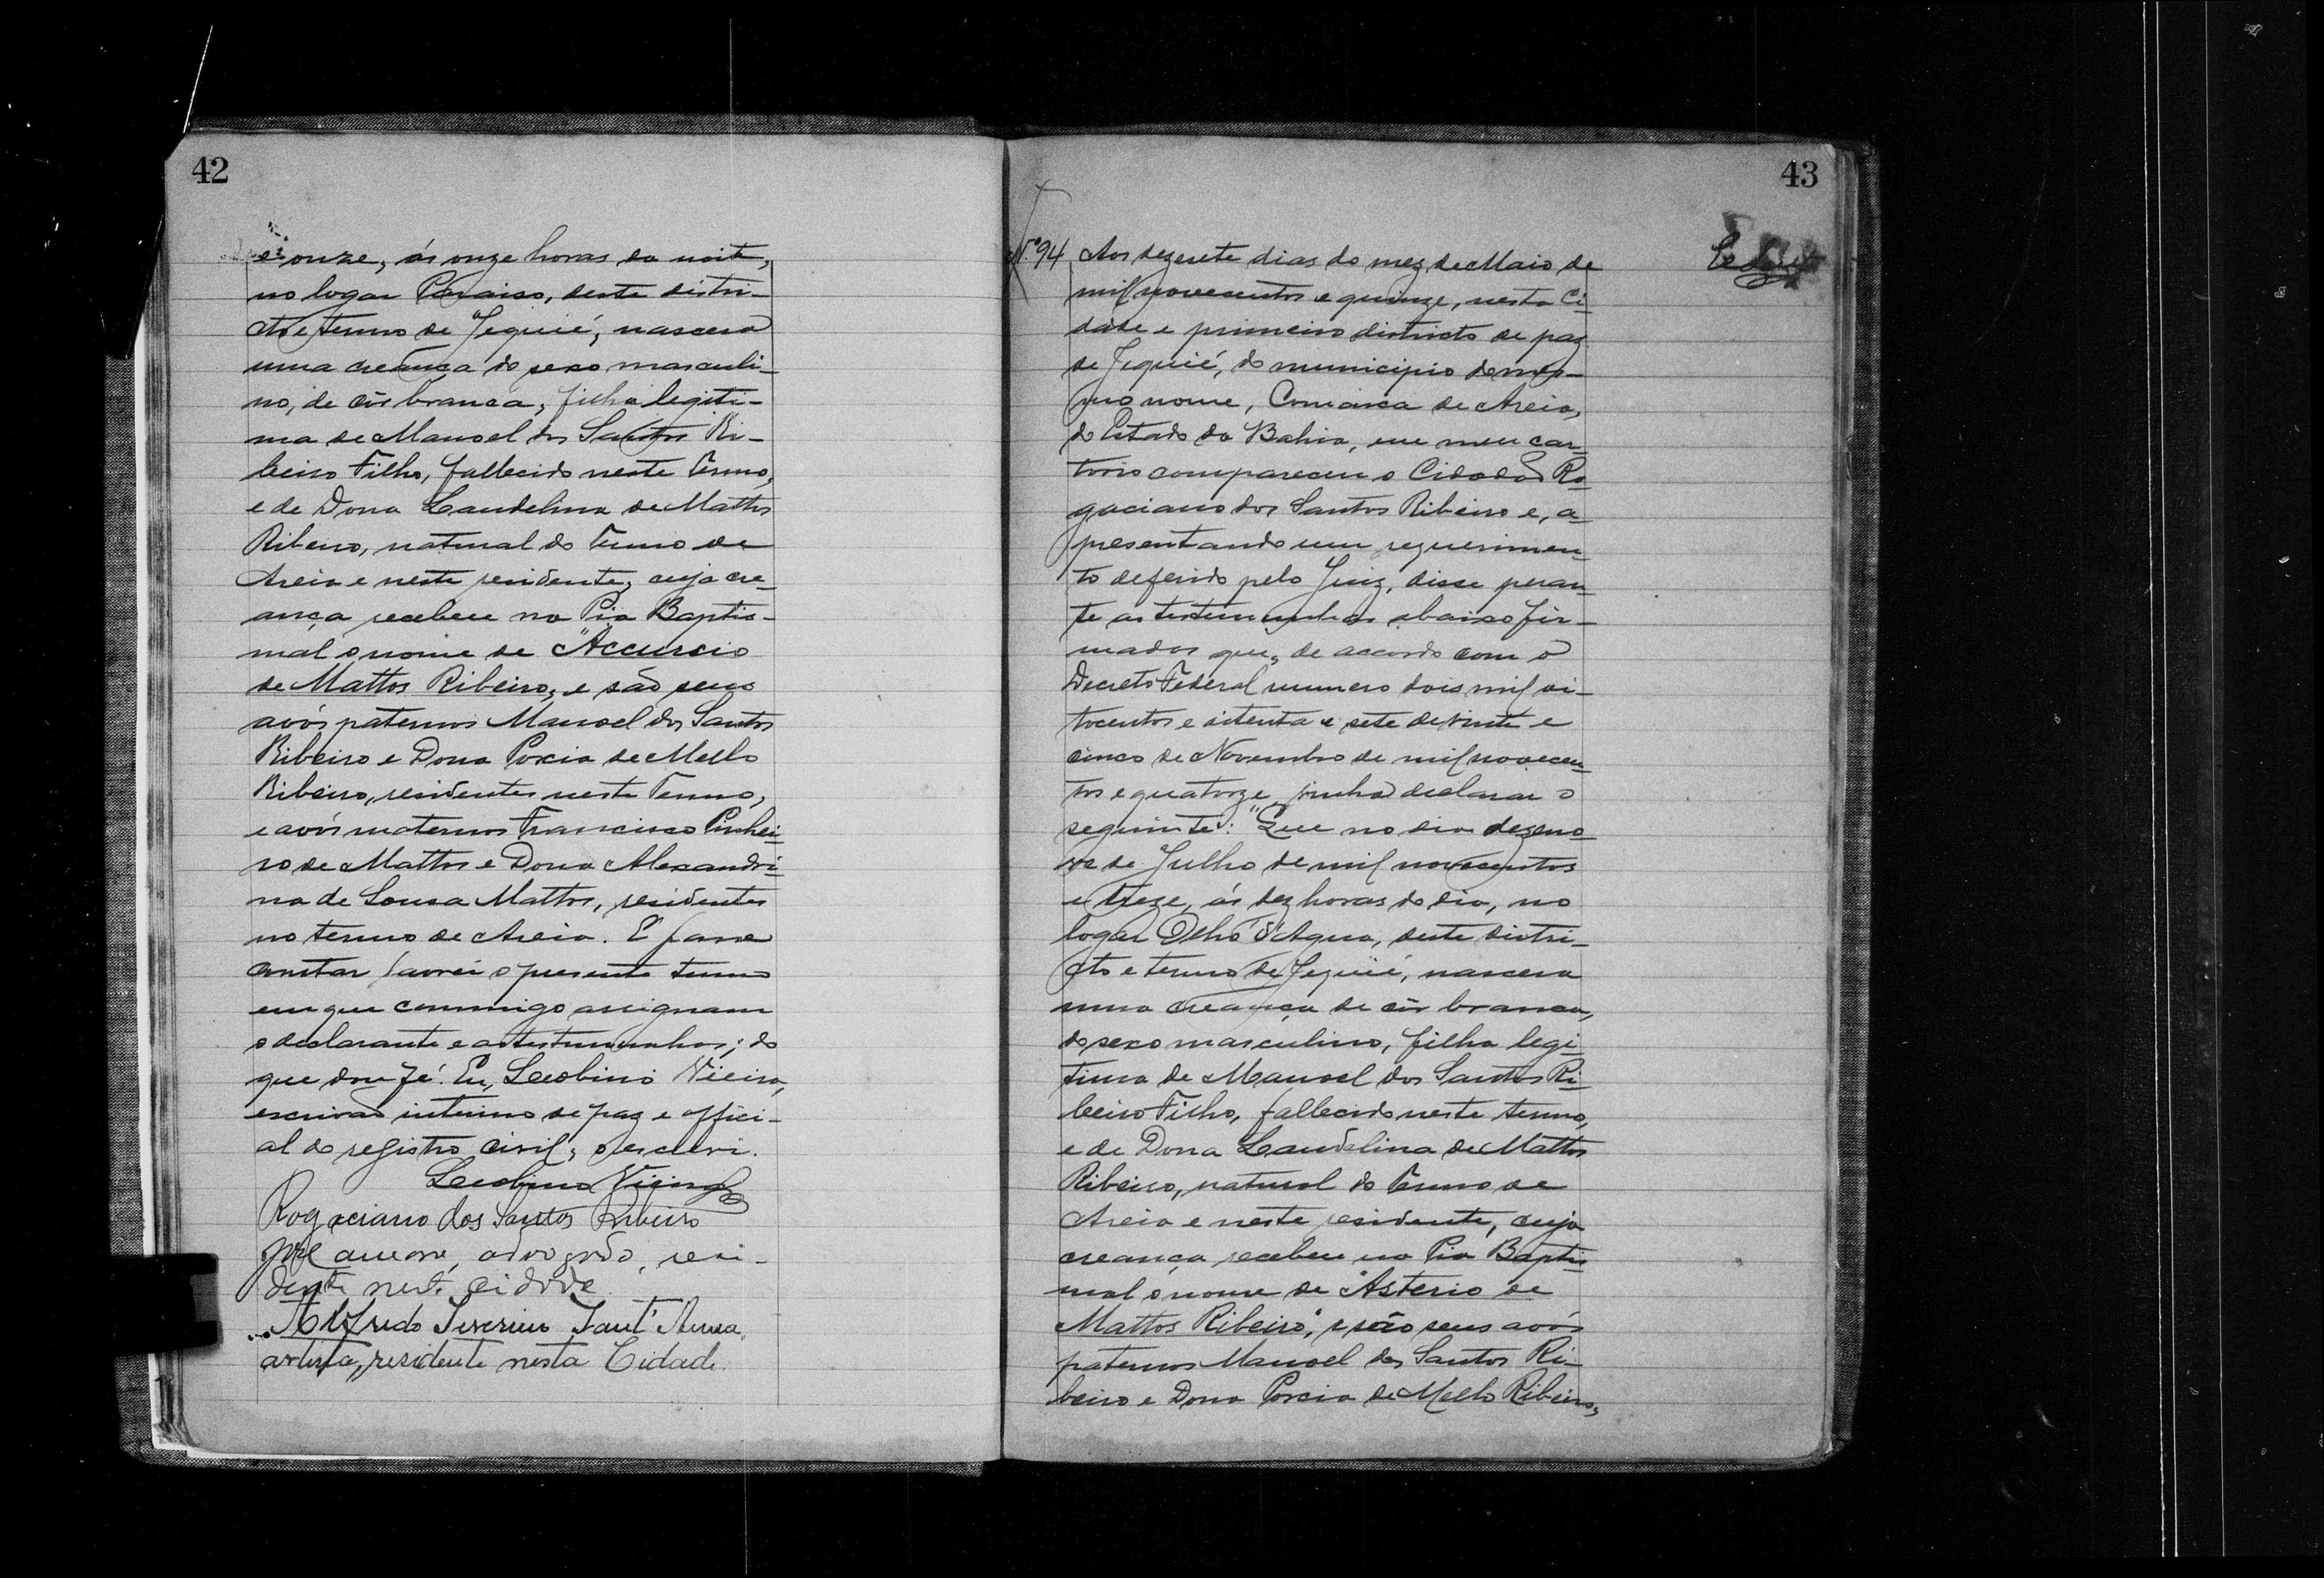 42
e onze, ás onze horas da noite,
no logar Paraiso, deste distri-
cto e termo de Jequié, nascera
uma creança do sexo masculi-
no, de côr branca, filha legiti-
ma de Manoel dos Santos Ri-
beiro Filho, fallecido neste termo,
e de Dona Laudelina de Mattos
Ribeiro, natural do Termo de
Areia e neste residente, cuja cre-
ança recebeu na Pia Baptis-
mal o nome de "Accurcio
de Mattos Ribeiro, e são seus
avós paternos Manoel dos Santos
Ribeiro e Dona Porcia de Mello
Ribeiro, residentes neste Termo,
e avós maternos Francisco Pinhei-
ro de Mattos e Dona Alexandri-
na de Sousa Mattos, residentes
no termo de Areia. E para
constar lavrei o presente termo
em que commigo assignam
o declarante e as testemunhas; do
que dou fé. Eu, Leobino Vieira,
escrivão interino de paz e offici-
al do registro civil, o escrevi.
Leobino Vieira
Rogaciano dos Santos Ribeiro
advogado, resi-
dente nesta cidade
Alfredo Severino Sant'Anna
artista, residente nesta Cidade.
43
Nº 94 Aos dezesete dias do mez de Maio de
mil novecentos e quinze, nesta Ci-
dade e primeiro districto de paz
de Jequié, do municipio do mes-
mo nome, Comarca de Areia,
do Estado da Bahia, em meu car-
torio compareceu o Cidadão Ro-
gaciano dos Santos Ribeiro e, a-
presentando um requerimen-
to deferido pelo Juiz, disse peran-
te as testemunhas abaixo fir-
madas que, de accordo com o
Decreto Federal numero dois mil oi-
tocentos e oitenta e sete de vinte e
cinco de Novembro de mil novecen-
tos e quatorze, vinha declarar o
seguinte: "Que no dia dezeno-
ve de Julho de mil novecentos
e treze, ás dez horas do dia, no
logar Olho d'Agua, deste distri-
cto e termo de Jequié, nascera
uma creança de côr branca,
do sexo masculino, filha legi-
tima de Manoel dos Santos Ri-
beiro Filho, fallecido neste termo,
e de Dona Laudelina de Mattos
Ribeiro, natural do Termo de
Areia e neste residente, cuja
creança recebeu na Pia Baptis-
mal o nome de "Asterio de
Mattos Ribeiro", e são seus avós
paternos Manoel dos Santos Ri-
beiro e Dona Porcia de Mello Ribeiro,